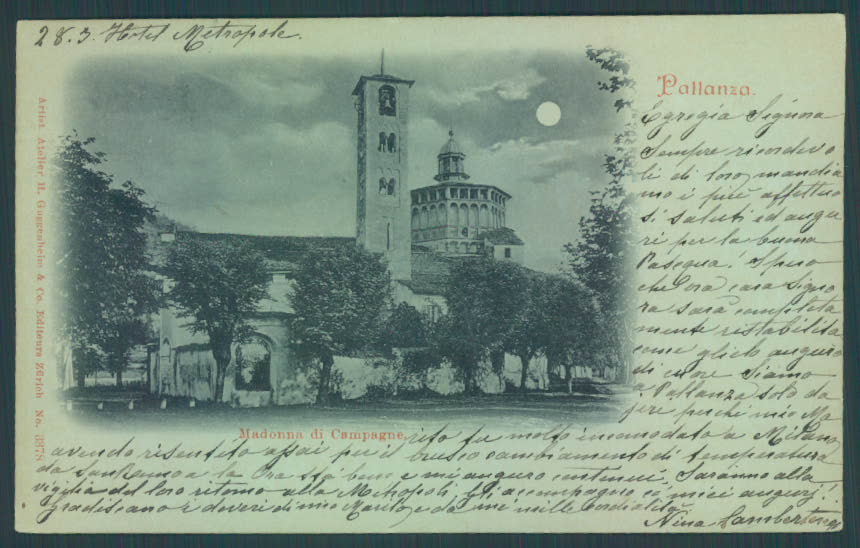 28.3. Hotel Metropole.
Pallanza.
Egregia Signora
Sempre ricordevo
li di loro, mandia
mo i più affettuo
si saluti ed augu
ri per la buona
Pasqua! Spero
che Ora cara Signo
ra sarà completa
mente ristabilita
come glielo auguro
di cuore. Siamo
a Pallanza solo da
perchè mio Ma
Madonna di Campagne
rito fu molto incomodato a Milano
avendo risentito assai per il brusco cambiamento di temperatura
da SanRemo a la Ora stà bene e mi auguro continui. Saranno alla
vigilia del loro ritorno alla Metropoli. Li accompagno coi miei auguri!
Gradiscano i doveri di mio Marito, e da me mille cordialità
Nina Lambertenghi
Artist. Atelier H. Guggenheim & Co. Editeurs Zürich No. 3378